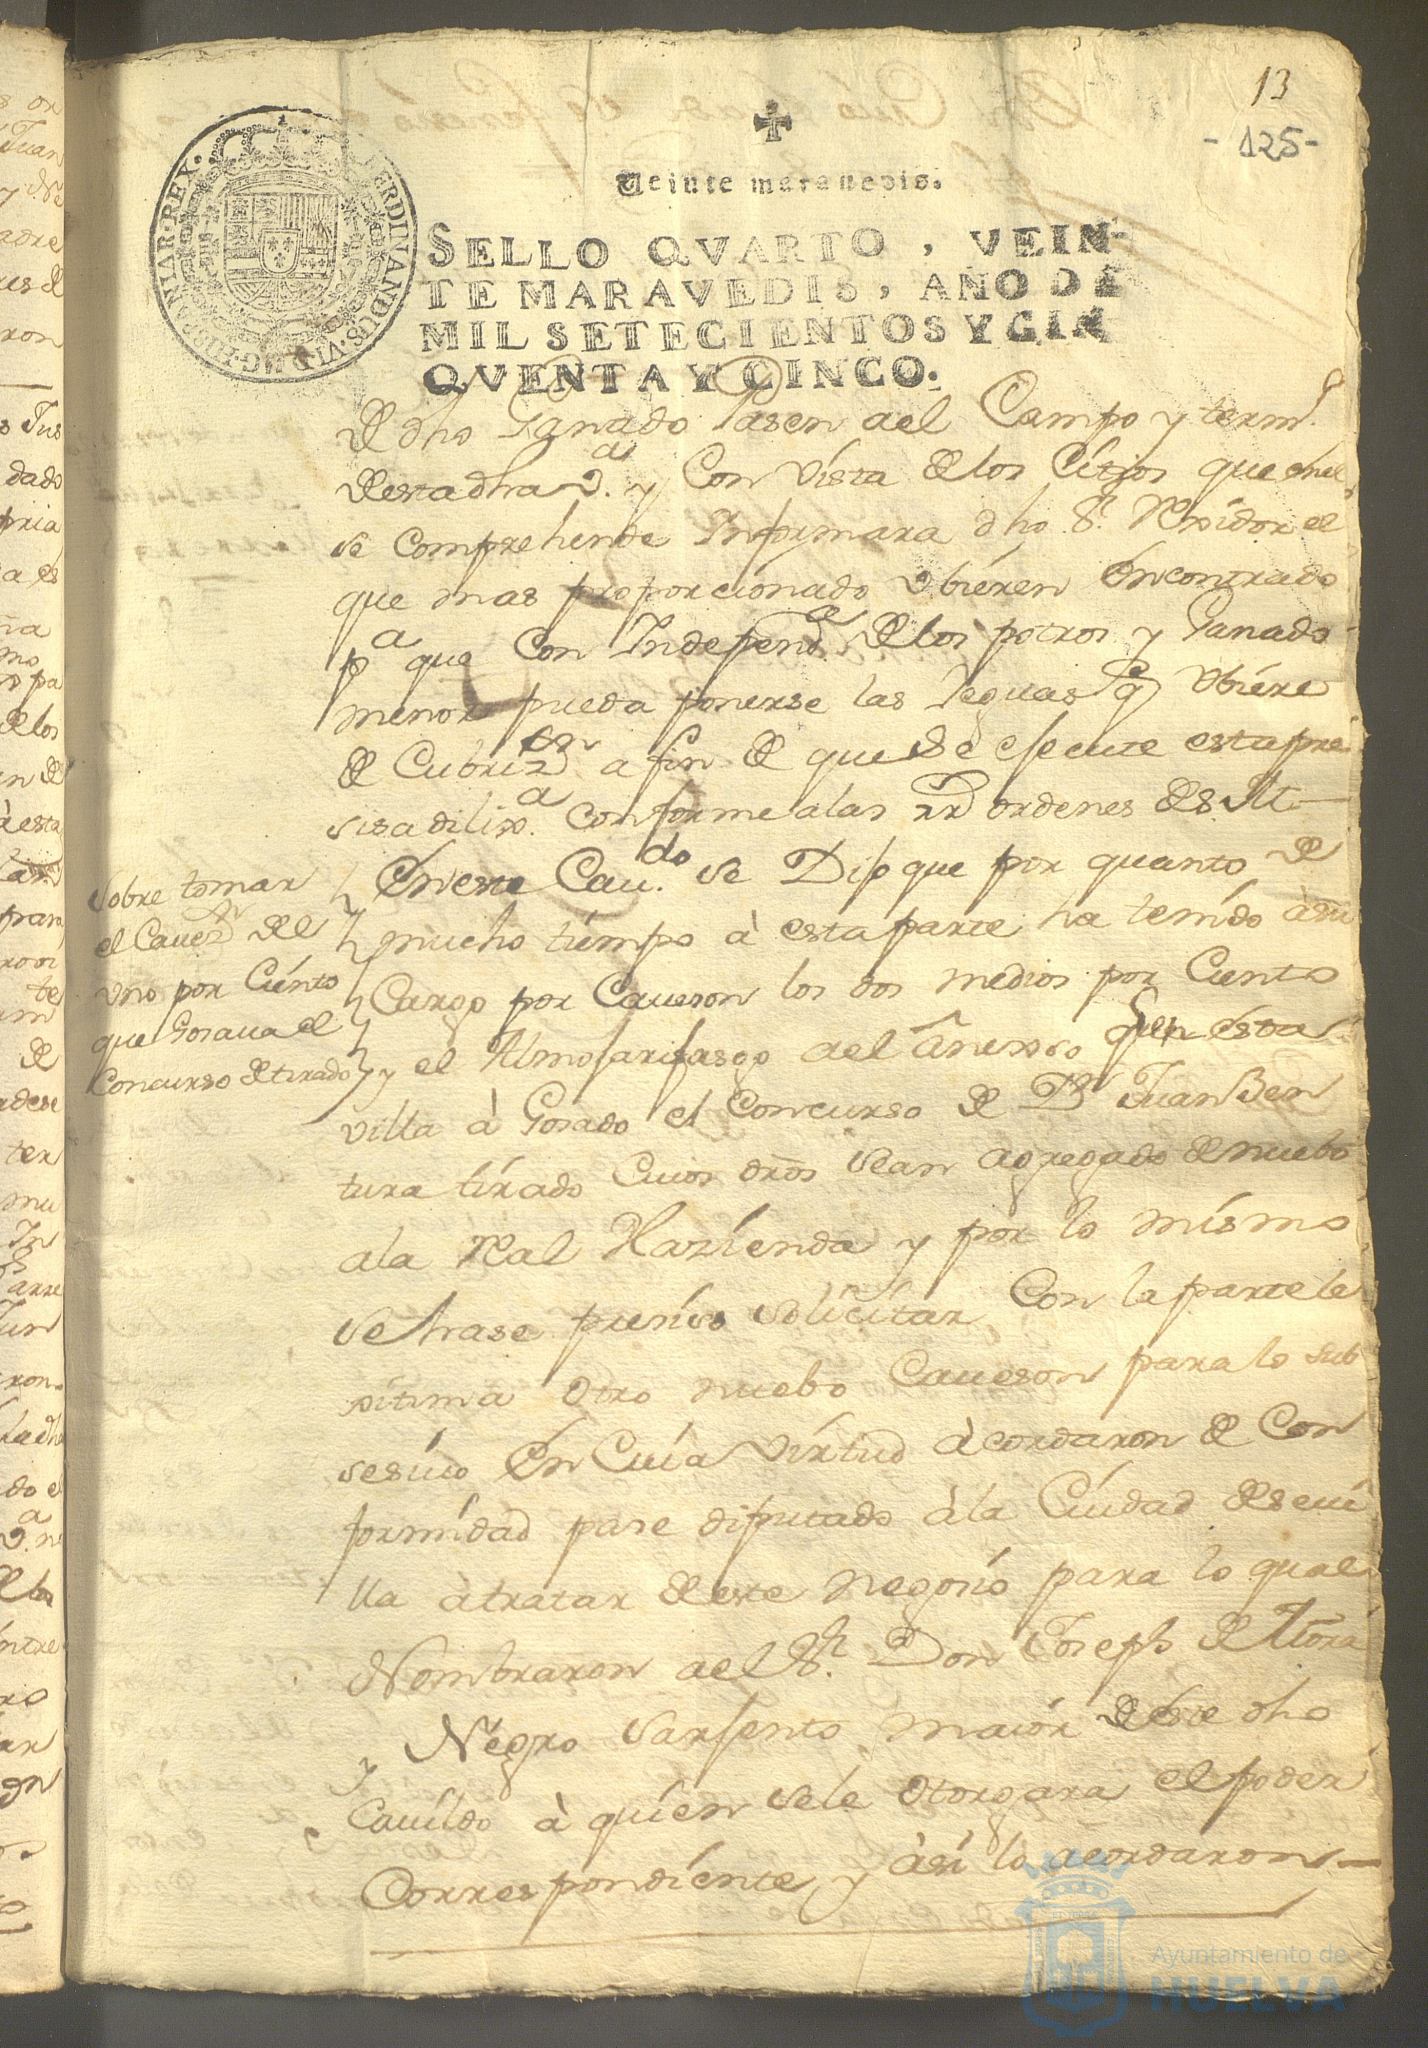 13
- 125 -
Veinte maravedis.
SELLO QVARTO, VEIN-
TE MARAVEDIS, AÑO DE
MIL SETECIENTOS Y CIN
QVENTA Y CINCO.
FERDINANDUS·VI·D·G·HISPANIAR·REX·
de dho Ganado Pasen ael Campo y termº
desta dha Vª. y Con Vista de los Citios que en el
se Comprehende Informara dho Sr. Rexidor el
que mas proporcionado Vbieren Encontrado
pª que Con Independª de los potros y Ganado
menor pueda ponerse las Yeguas q Vbiere
de Cubrirse a fin de que se efecute esta pre
sisa dilixª. conforme alas rr ordenes de S. M.
Sobre tomar
el Caues.n del
Vno por Ciento
que Gosaua el
Concurso de tirado
En este Cau.do se Dijo que por quanto de
mucho tiempo à esta parte ha tenido à su
Cargo por Caueson los dos medios por Ciento
y el Almojarifasgo del Anexso Quen esta
villa à Gosado el Concurso de Dn Juan Ben
tura tirado Cuios dros sean agregado de nuebo
ala Real Hazienda y por lo mismo
se hase presiso solicitar Con la parte le
xitima otro nuebo Caueson para lo sub
sesiuo En Cuia Virtud àcordaron de Con
formidad pase diputado àla Ciudad de seui
lla àtratar de este negosio para lo qual
Nombraron ael Sr. Don Joseph de Mora
y Negro Sarjento maior de este dho
Cauildo à quien se le otorgara el poder
Correspondiente y àsi lo acordaron
Ayuntamiento de
HUELVA